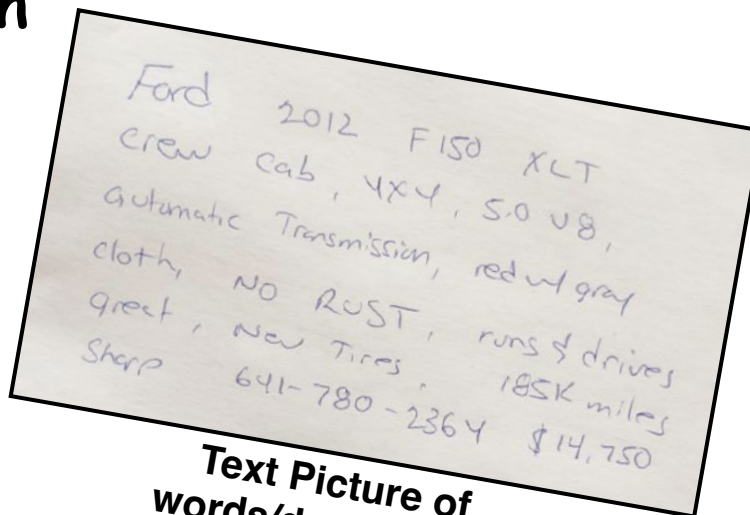 n
Ford 2012 F150 XLT
crew cab, 4x4, 5.0 V8,
automatic Transmission, red w/ gray
cloth, NO RUST, runs & drives
great, New Tires, 185K miles
Sharp 641-780-2364 $14,750
Text Picture of